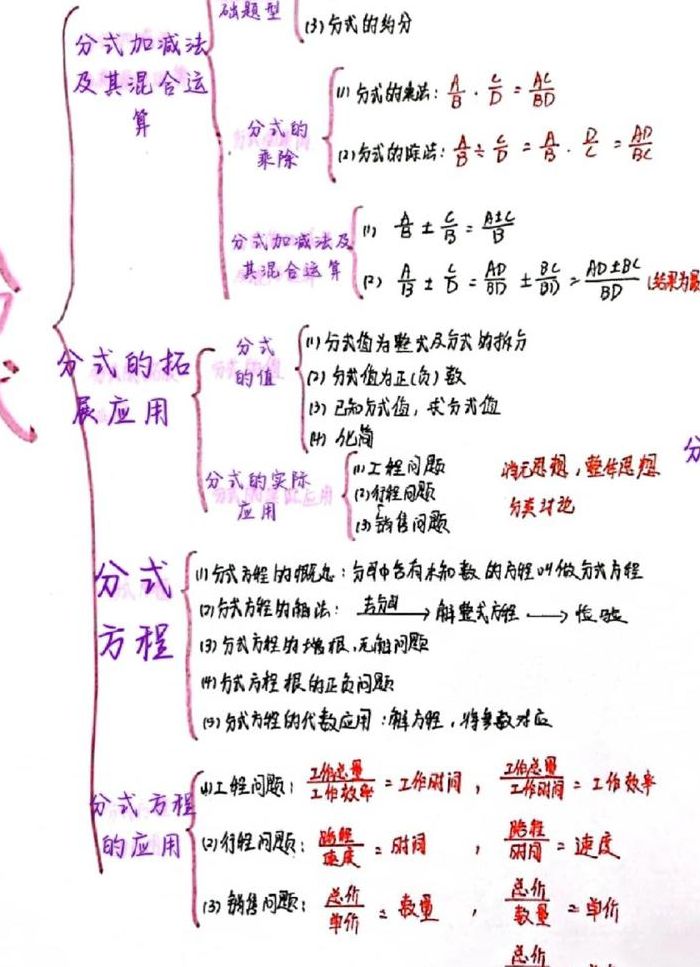 础题型
(3) 分式的约分
分式加减法
及其混合运
算
分式的
乘除
(1) 分式的乘法: A/B · C/D = AC/BD
(2) 分式的除法: A/B ÷ C/D = A/B · D/C = AD/BC
分式加减法及
其混合运算
(1) A/B ± C/B = A±C/B
(2) A/B ± C/D = AD/BD ± BC/BD = AD±BC/BD (结果为最
分式的拓
展应用
分式
的值
(1) 分式值为整式及分式的拆分
(2) 分式值为正(负)数
(3) 已知分式值, 求分式值
(4) 化简
分式的实际
应用
(1) 工程问题
(2) 行程问题
(3) 销售问题
消元思想, 整体思想
分类讨论
分
分式
方程
(1) 分式方程的概念: 分母中含有未知数的方程叫做分式方程
(2) 分式方程的解法: 去分母 → 解整式方程 → 检验
(3) 分式方程的增根, 无解问题
(4) 分式方程根的正负问题
(5) 分式方程的代数应用: 解方程, 将参数对应
分式方程
的应用
(1) 工程问题: 工作总量/工作效率 = 工作时间, 工作总量/工作时间 = 工作效率
(2) 行程问题: 路程/速度 = 时间, 路程/时间 = 速度
(3) 销售问题: 总价/单价 = 数量, 总价/数量 = 单价
总价